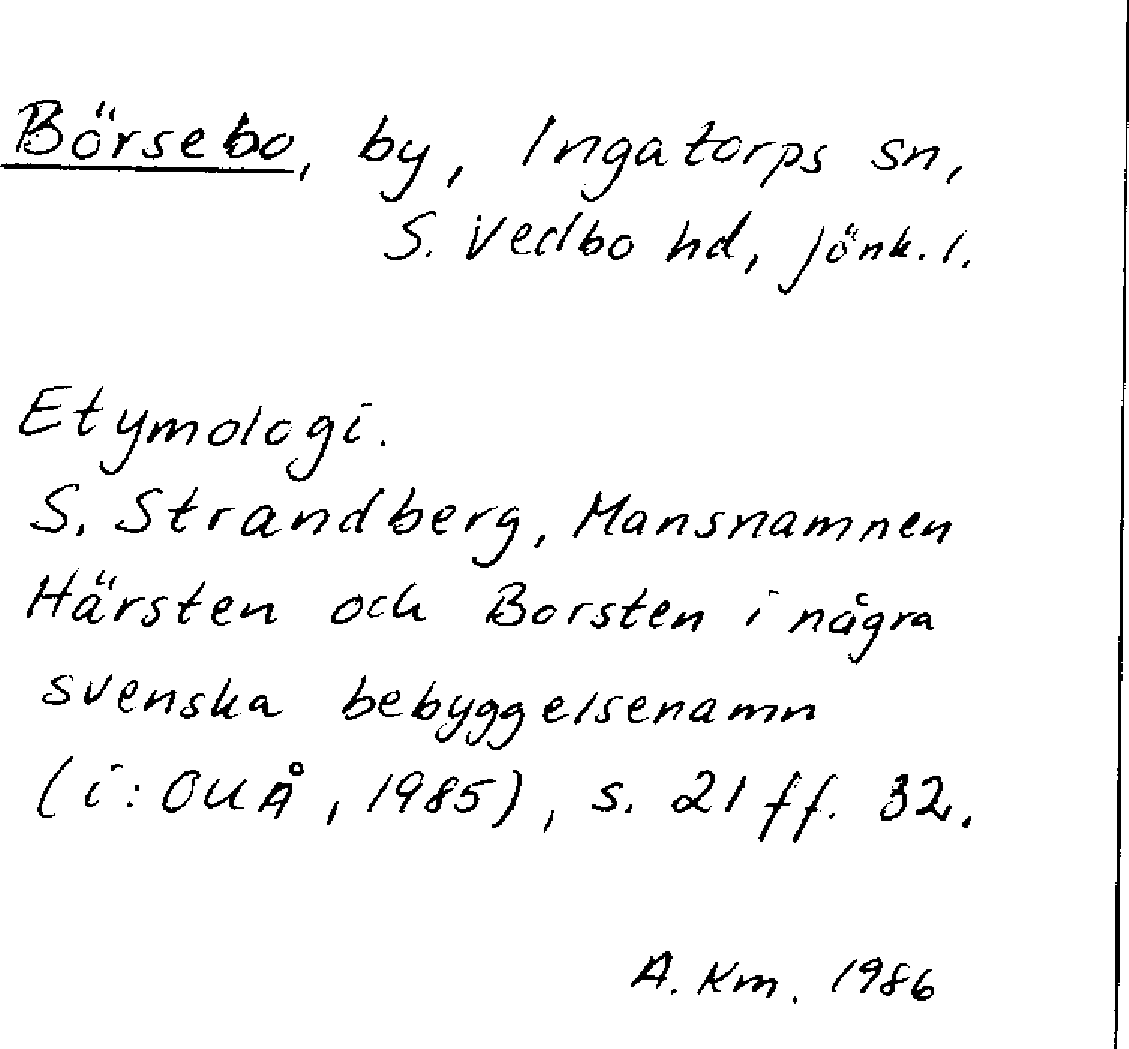 Börsebo, by, Ingatorps sn,
S. Vedbo hd, Jönk. l.
Etymologi.
S. Strandberg, Mansnamnen
Härsten och Borsten i några
svenska bebyggelsenamn
(i: OUÅ, 1985), s. 21 ff. 32.
A. Km. 1986